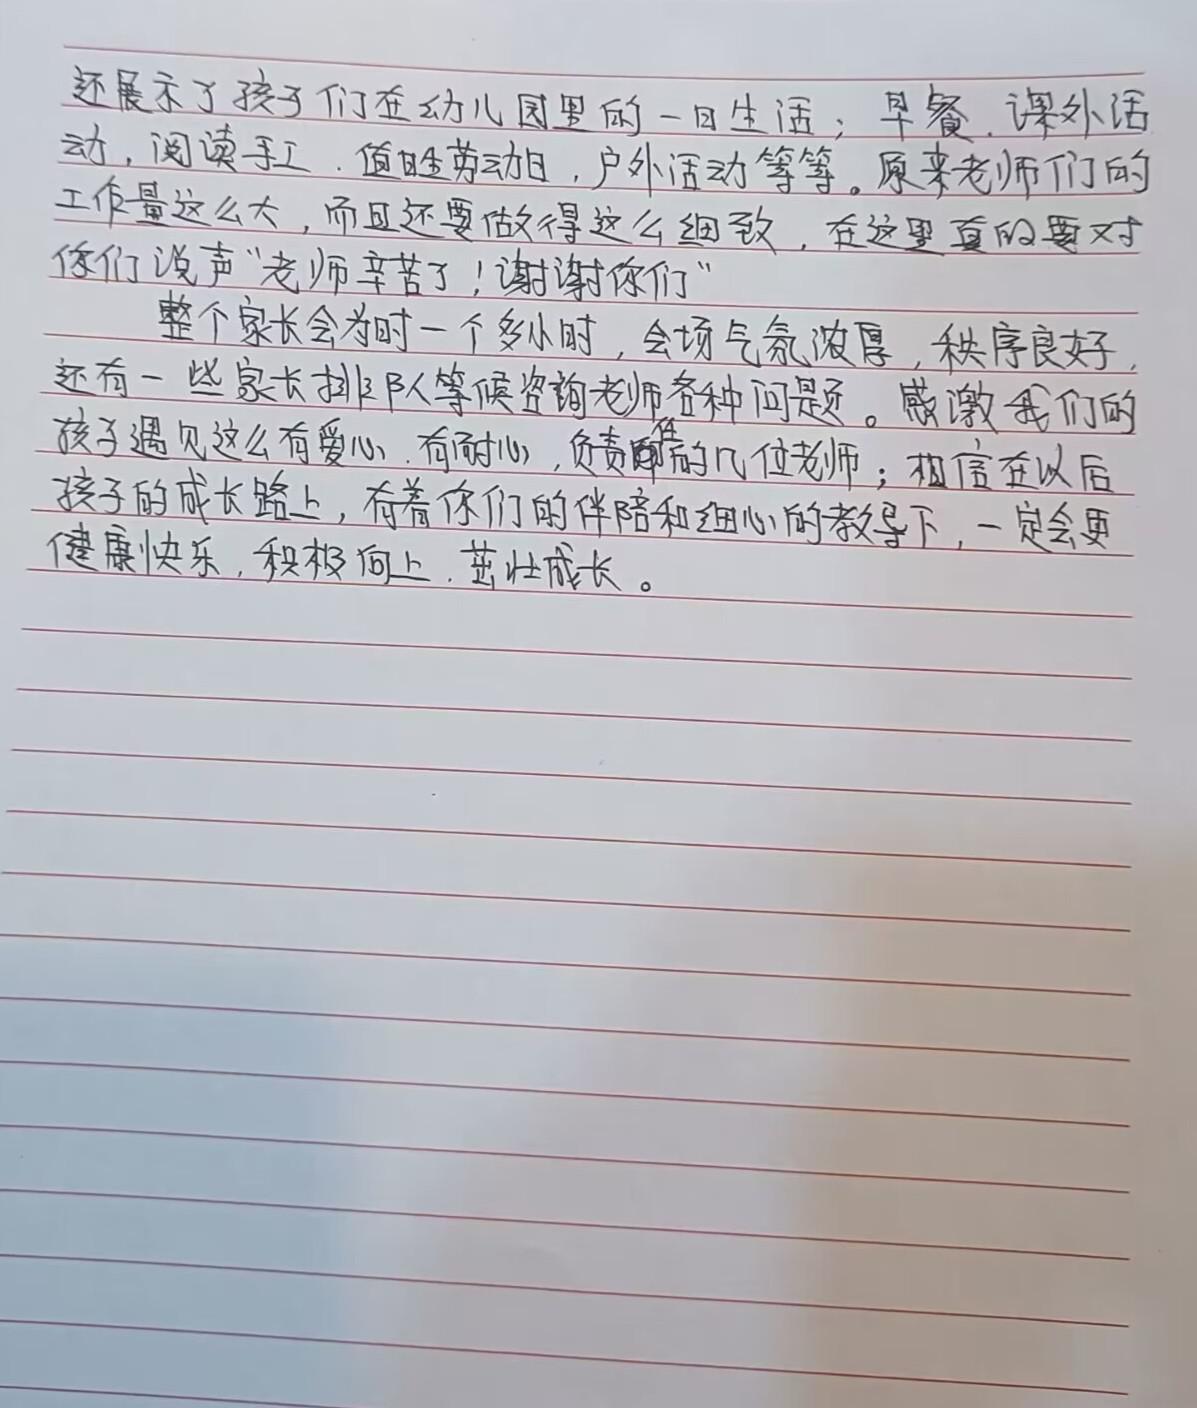 还展示了孩子们在幼儿园里的一日生活；早餐、课外活
动，阅读手工、值日生劳动日，户外活动等等。原来老师们的
工作量这么大，而且还要做得这么细致，在这里真的要对
你们说声“老师辛苦了！谢谢你们”
整个家长会为时一个多小时，会场气氛浓厚，秩序良好，
还有一些家长排队等候咨询老师各种问题。感激我们的
孩子遇见这么有爱心、有耐心，负责任的几位老师；相信在以后
孩子的成长路上，有着你们的伴陪和细心的教导下，一定会更
健康快乐，积极向上，茁壮成长。